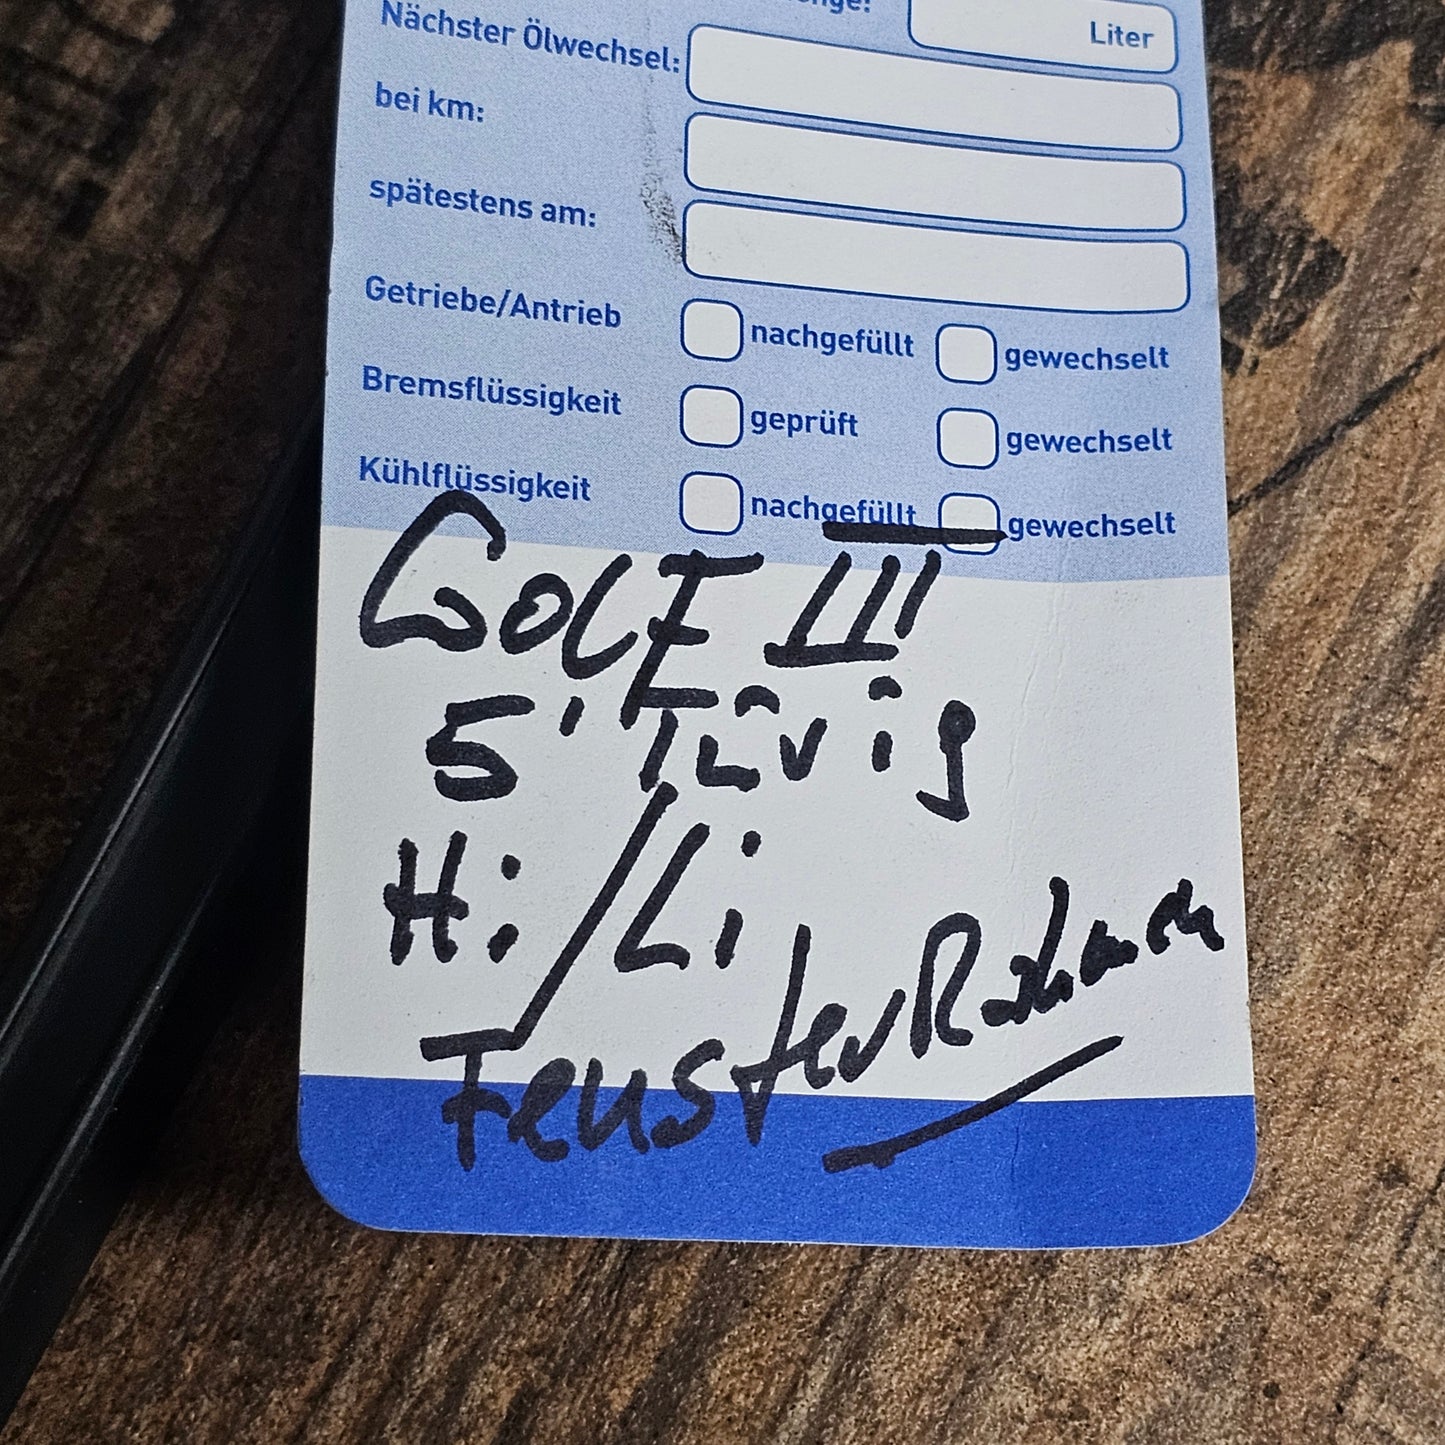 nge: Liter
Nächster Ölwechsel:
bei km:
spätestens am:
Getriebe/Antrieb nachgefüllt gewechselt
Bremsflüssigkeit geprüft gewechselt
Kühlflüssigkeit nachgefüllt gewechselt
Golf III
5' Türig
Hi/Li
FensterRahmen